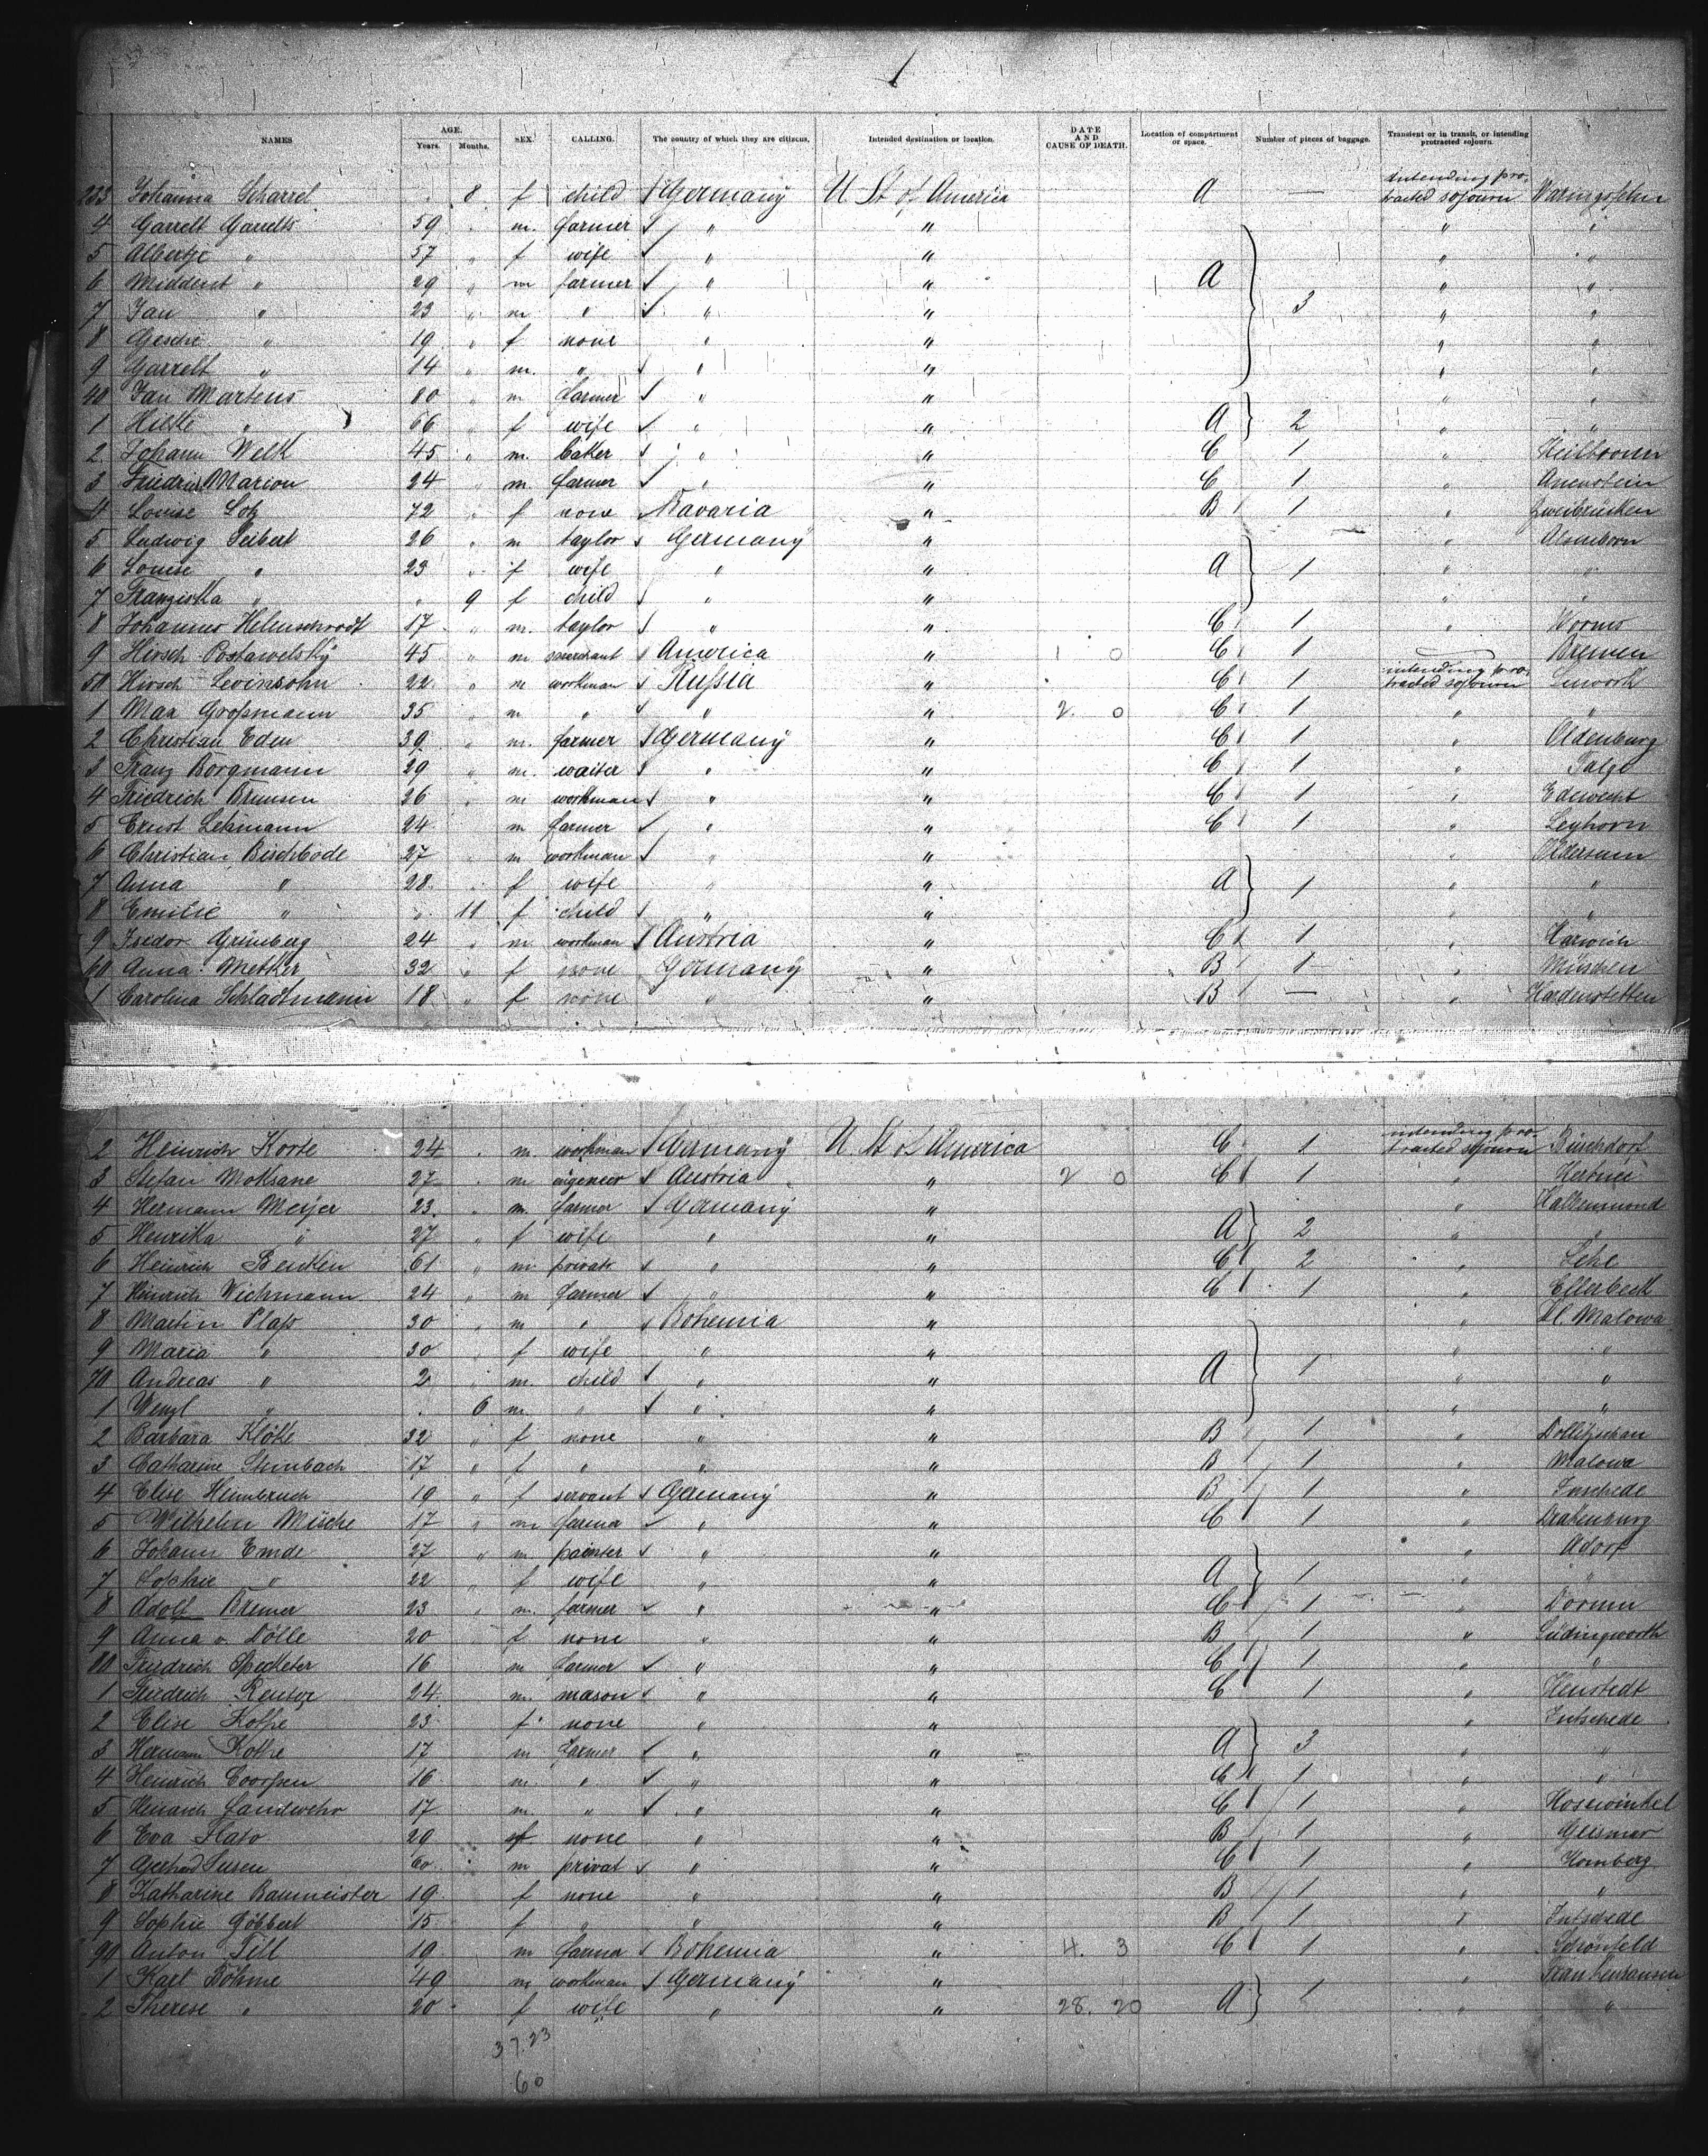 NAMES AGE. Years. Months. SEX CALLING. The country of which they are citizens. Intended destination or location. DATE AND CAUSE OF DEATH. Location of compartment or space. Number of pieces of baggage. Transient or in transit, or intending protracted sojourn.
233 Johanna Scharrel 8 f child Germany U St of America A — intending protracted sojourn Waringsfehn
4 Garrelt Garrelts 59 " m. farmer " " " "
5 Albertje " 57 " f wife " " " "
6 Middent " 29 " m farmer " " A " "
7 Jan " 23 " m " " " 3 " "
8 Gesche " 19 " f none " " " "
9 Garrelt " 14 " m. " " " " "
40 Jan Martens 80 " m farmer " " " "
1 Hilke " 66 " f wife " " A 2 " "
2 Johann Welk 45 " m. baker " " C 1 " Heilbronn
3 Friedrich Marion 24 " m farmer " " C 1 "
4 Louise Lotz 72 " f none Bavaria " B 1 " Zweibrücken
5 Ludwig Seibert 26 " m taylor Germany " " Alsenborn
6 Louise " 23 " f wife " " A 1 " "
7 Franziska " " 9 f child " " " "
8 Johannes Helmschrodt 17 " m. taylor " " C 1 " Worms
9 Hersch Postawelsky 45 " m merchant America " 1 0 C 1 Bremen
50 Hirsch Levinsohn 22 " m workman Russia " C 1 intending protracted sojourn
1 Max Grossmann 35 " m " " " 2. 0 C 1 " "
2 Christian Eden 39 " m. farmer Germany " C 1 " Oldenburg
3 Franz Borgmann 29 " m. waiter " " C 1 " Talge
4 Friedrich Brunsen 26 " m workman " " C 1 " Edewecht
5 Ernst Lehmann 24 m farmer " " C 1 " Leghorn
6 Christian Bischbode 27 " m workman " " " Oldersum
7 Anna " 28 " f wife " " A 1 " "
8 Emilie " " 11 f child " " " "
9 Isedor Grünberg 24 " m workman Austria " C 1 " Harwich
60 Anna Metker 32 " f none Germany " B 1 "
1 Carolina Schladtmann 18 " f none " " B — " Hardenstetten
2 Heinrich Korte 24 " m. workman Germany U. St of America C 1 intending protracted sojourn Buschdorf
3 Stefan Moksane 27 " m engeneer Austria " 2 0 C 1 "
4 Hermann Meijer 23 " m. farmer Germany " "
5 Henrika " 27 " f wife " " A 2 " "
6 Heinrich Benken 61 " m private " " C 2 " Lehe
7 Heinrich Wichmann 24 " m farmer " " C 1 " Ellerbeck
8 Martin Plass 30 " m " Bohemia " " Kl. Malowa
9 Maria " 30 " f wife " " " "
70 Andreas " 2 " m. child " " A 1 " "
1 Wenzl " . 6 m. " " " " "
2 Barbara Klökl 32 " f none " " B 1 " Dollitschan
3 Catharine Steinbach 17 " f " " " B 1 " Malowa
4 Elise Heimbruch 19 " f servant Germany " B 1 " Intschede
5 Wilhelm Müsche 17 " m farmer " " C 1 " Drakenburg
6 Johann Emde 27 " m painter " " " Adorf
7 Sophie " 22 " f wife " " A 1 " "
8 Adolf Bremer 23 " m. farmer " " C 1 " Dornum
9 Anna v. Dölle 20 " f none " " B 1 " Lüdingworth
80 Friedrich Specketer 16 m farmer " " C 1 " "
1 Friedrich Reuter 24 m. mason " " C 1 " Henstedt
2 Elise Kothe 23 f none " " " Intschede
3 Hermann Kothe 17 m farmer " " A 3 " "
4 Heinrich Coorssen 16 m. " " " C 1 " "
5 Heinrich Landwehr 17 m. " " " C 1 " Hoswinkel
6 Eva Flato 29 f none " " B 1 " Geismar
7 Gerhard Susen 60 m privat " " C 1 " Homberg
8 Katharine Baumeister 19 f none " " B 1 " "
9 Sophie Göbbert 15 f " " " B 1 " Intschede
90 Anton Till 19 m farmer Bohemia " 4. 3 C 1 " Schönfeld
1 Karl Böhme 49 m workman Germany " " Frankenhausen
2 Therese " 20 f wife " " 28. 20 A 1 " "
37.23
60